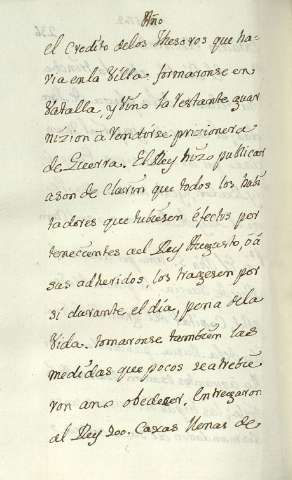 Año
el Credito delos Thesoros que ha-
via en la Villa, formaronse en
Vatalla, y Vino la restante guar
nizion a rendirse prizionera
de Guerra. El Rey hizo publicar
a son de Clarin que todos los havi
tadores que tubiesen efectos per
tenecientes ael Rey Augusto, o á
sus adheridos, los tragesen por
sí durante el dia, pena dela
Vida. tomaronse tambien las
medidas que pocos se atrebie
ron a no obedezer. Entregaron
al Rey 200. Caxas llenas de